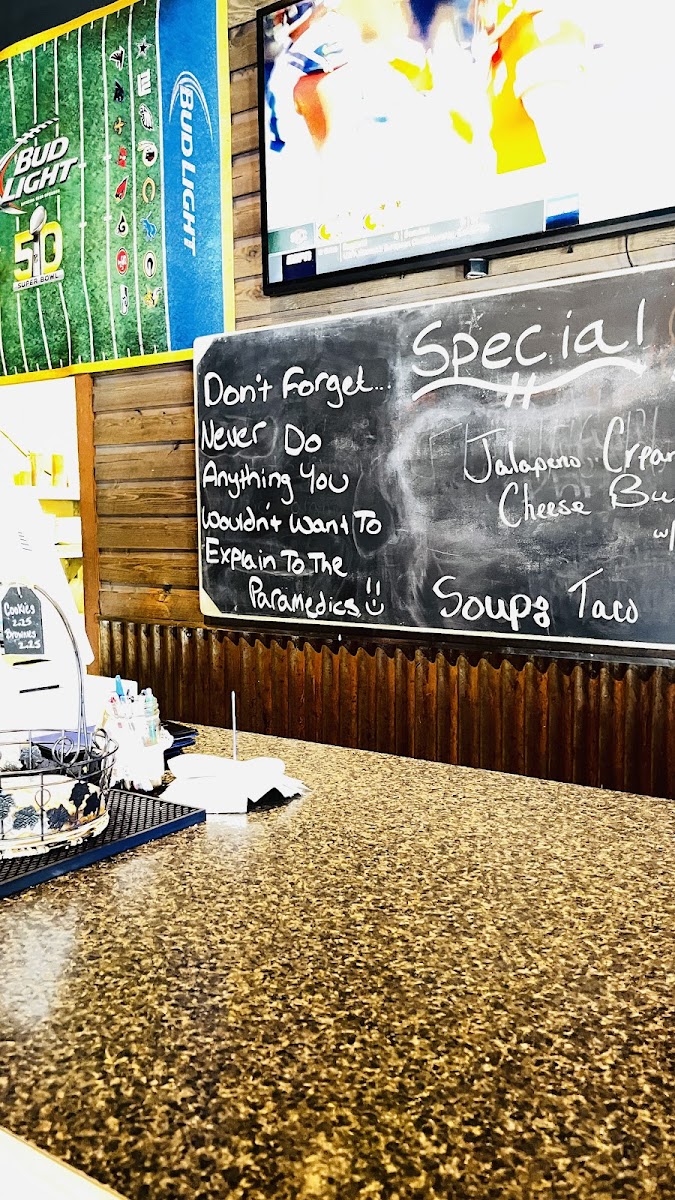 BUD
LIGHT
50
SUPER BOWL
BUD LIGHT
Don't Forget...
Never Do
Anything You
Wouldn't Want To
Explain To The
Paramedics
Special
Jalapeno
Cheese
w/
Soups Taco
Cookies
2.25
Brownies
2.25